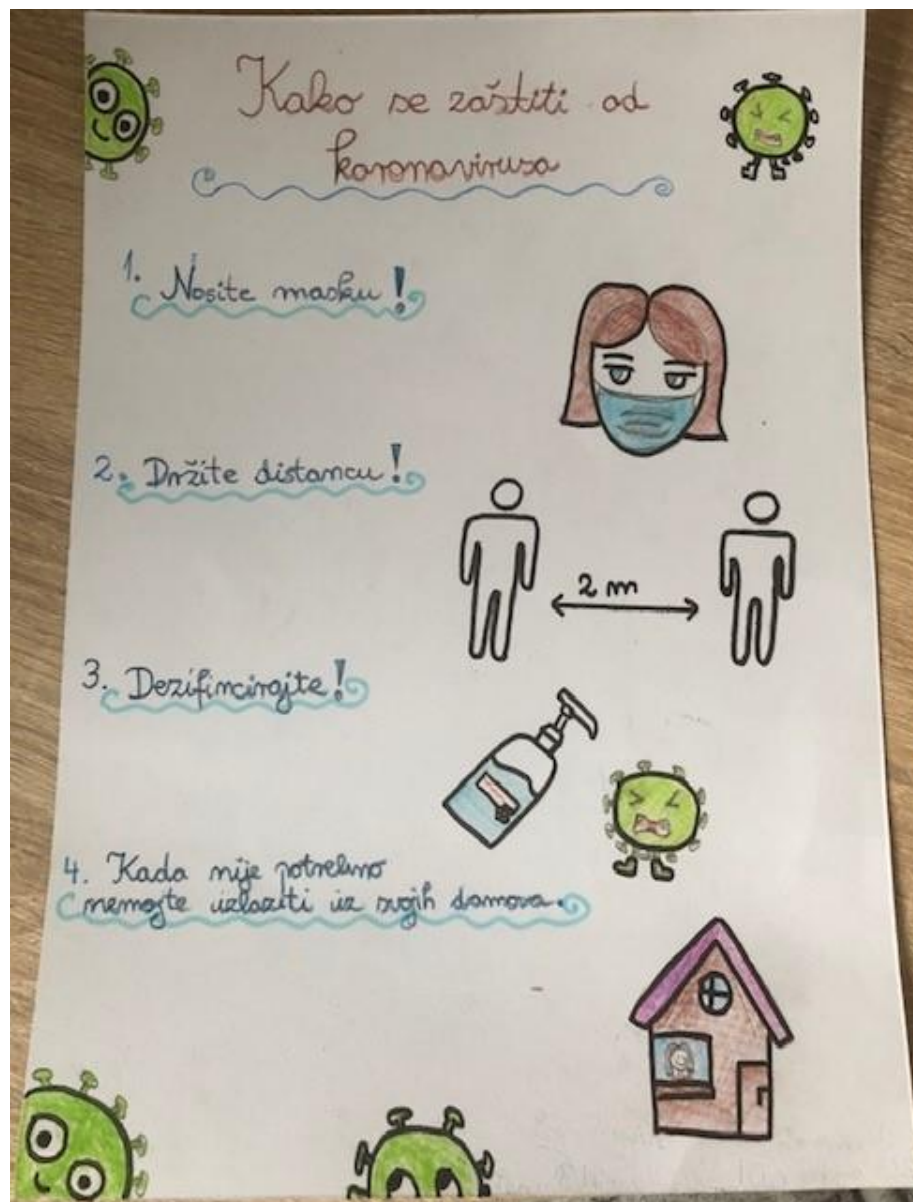 Kako se zaštiti od
koronavirusa
1. Nosite masku!
2. Držite distancu!
2 m
3. Dezifincirajte!
4. Kada nije potrebno
nemojte izlaziti iz svojih domova.